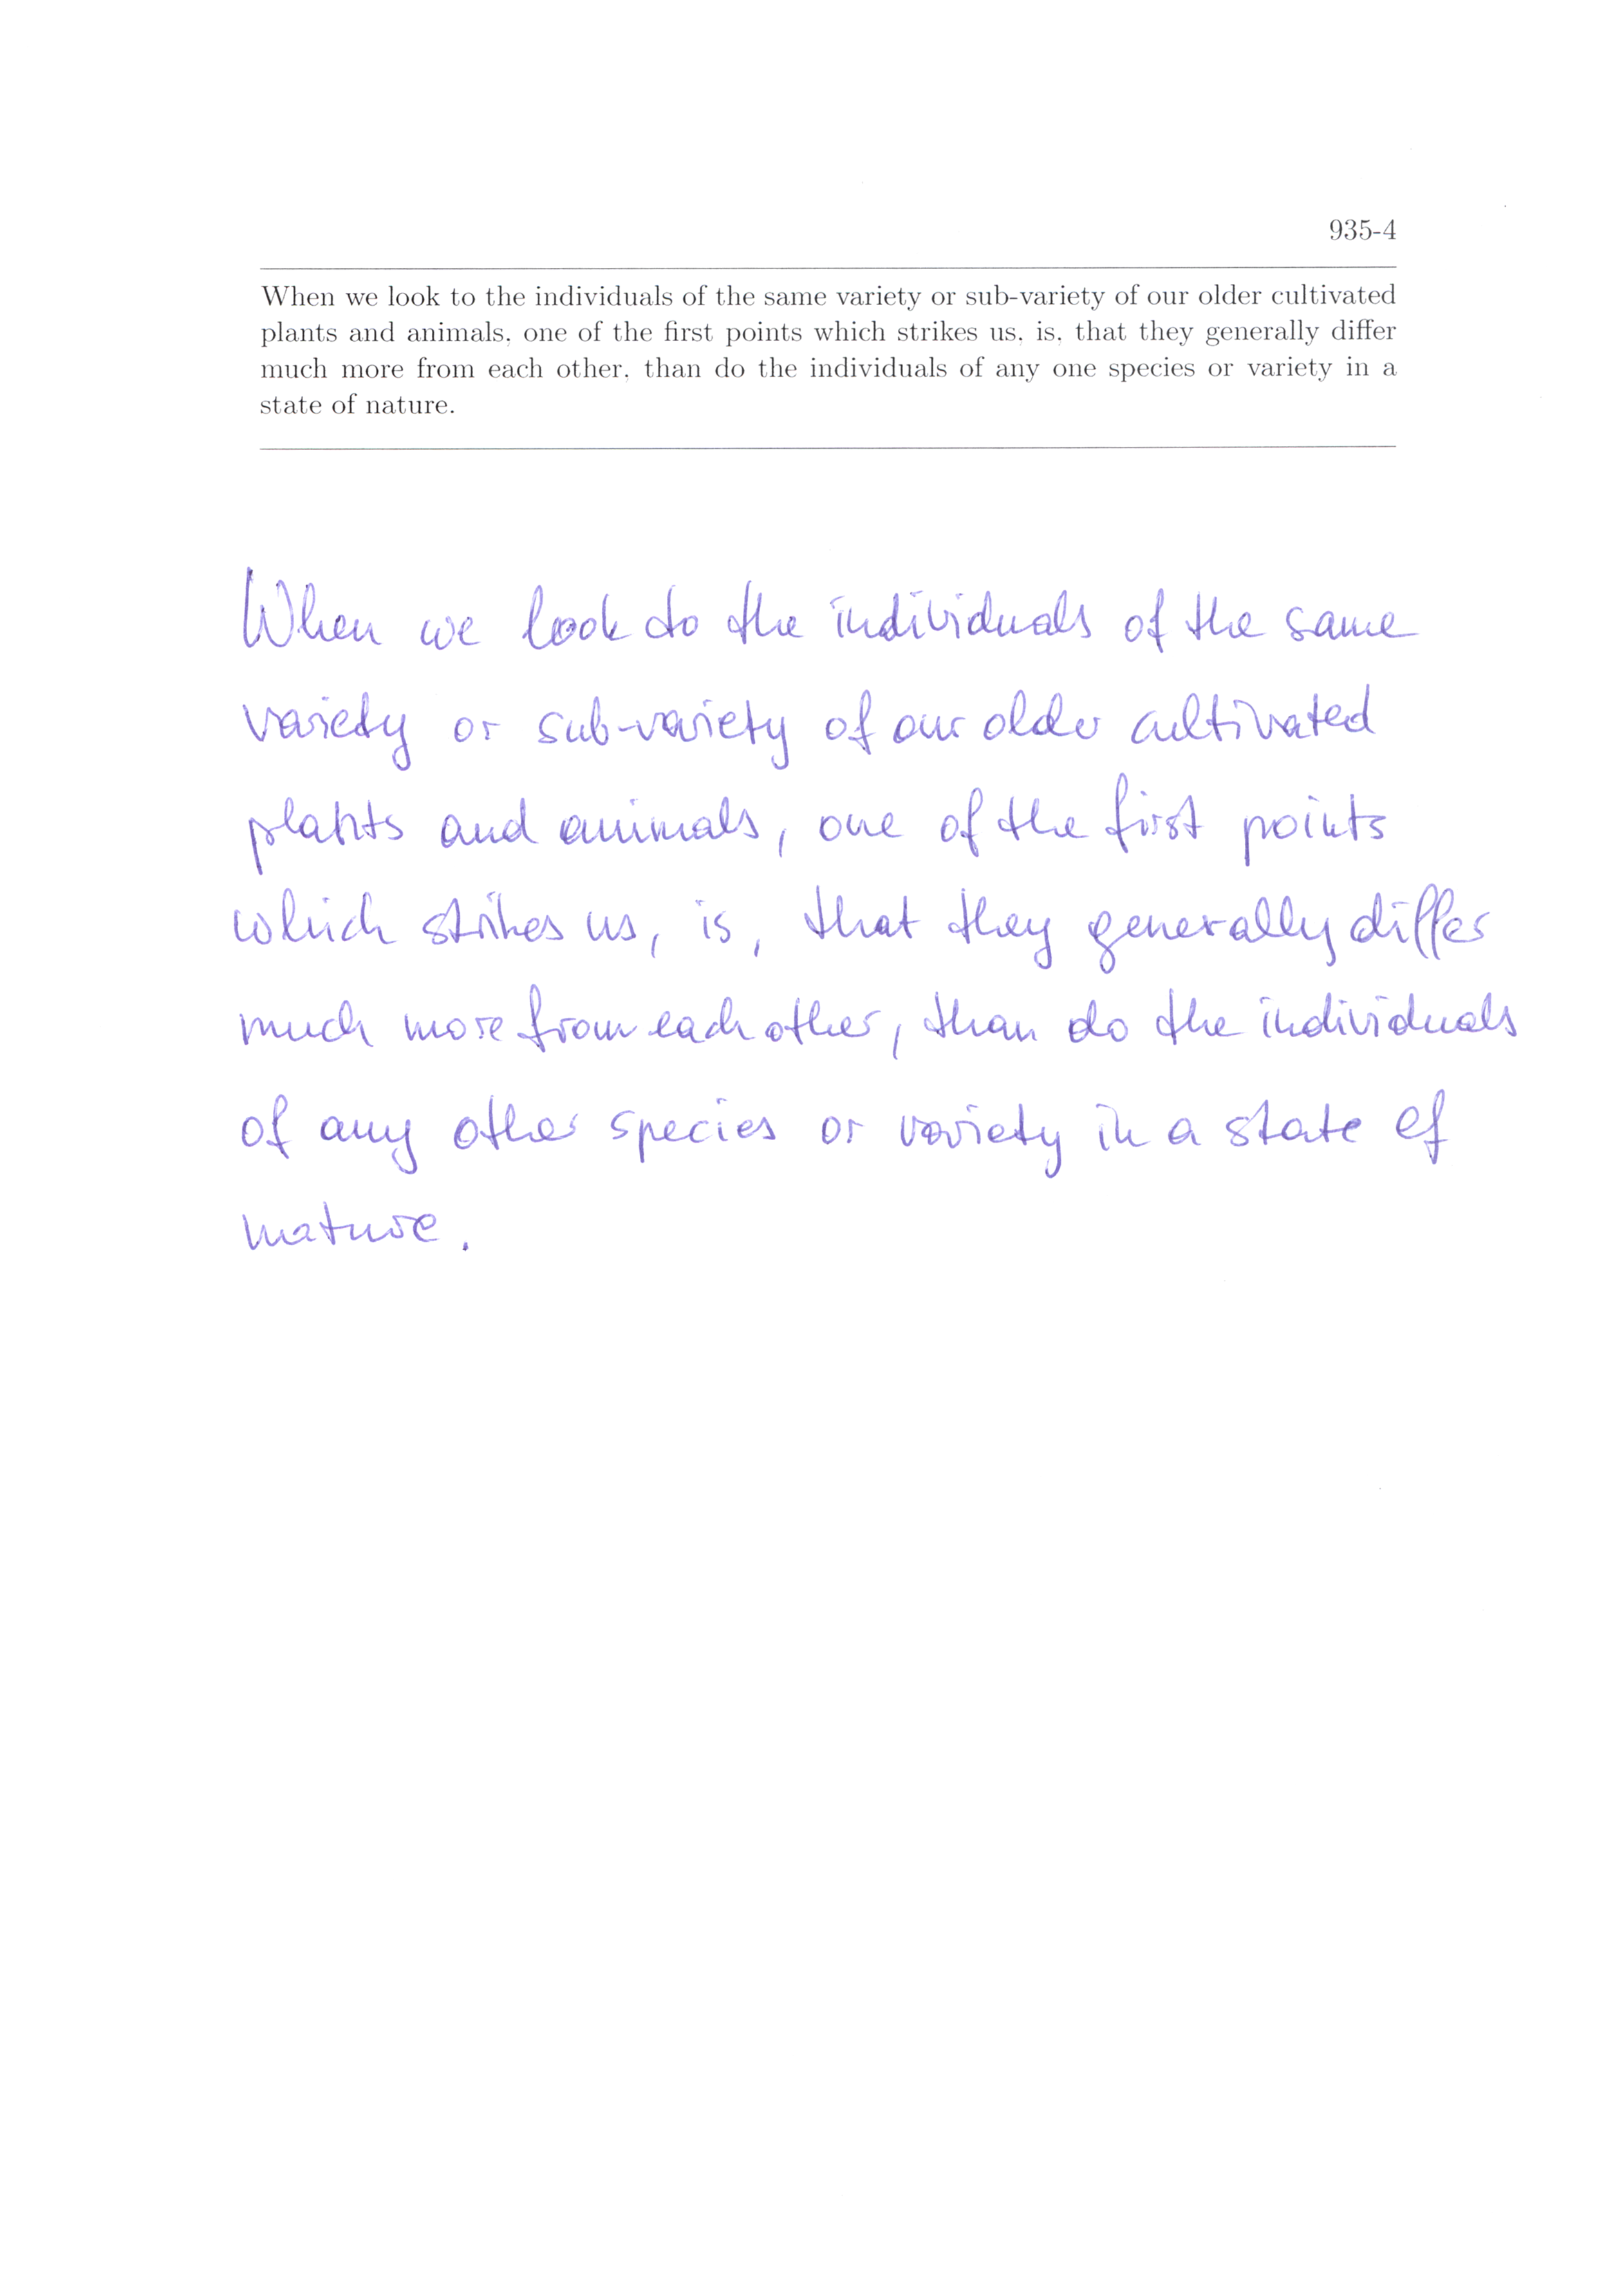 935-4
When we look to the individuals of the same variety or sub-variety of our older cultivated
plants and animals, one of the first points which strikes us, is, that they generally differ
much more from each other, than do the individuals of any one species or variety in a
state of nature.
When we look to the individuals of the same
variety or sub-variety of our older cultivated
plants and animals, one of the first points
which strikes us, is, that they generally differ
much more from each other, than do the individuals
of any other species or variety in a state of
nature.